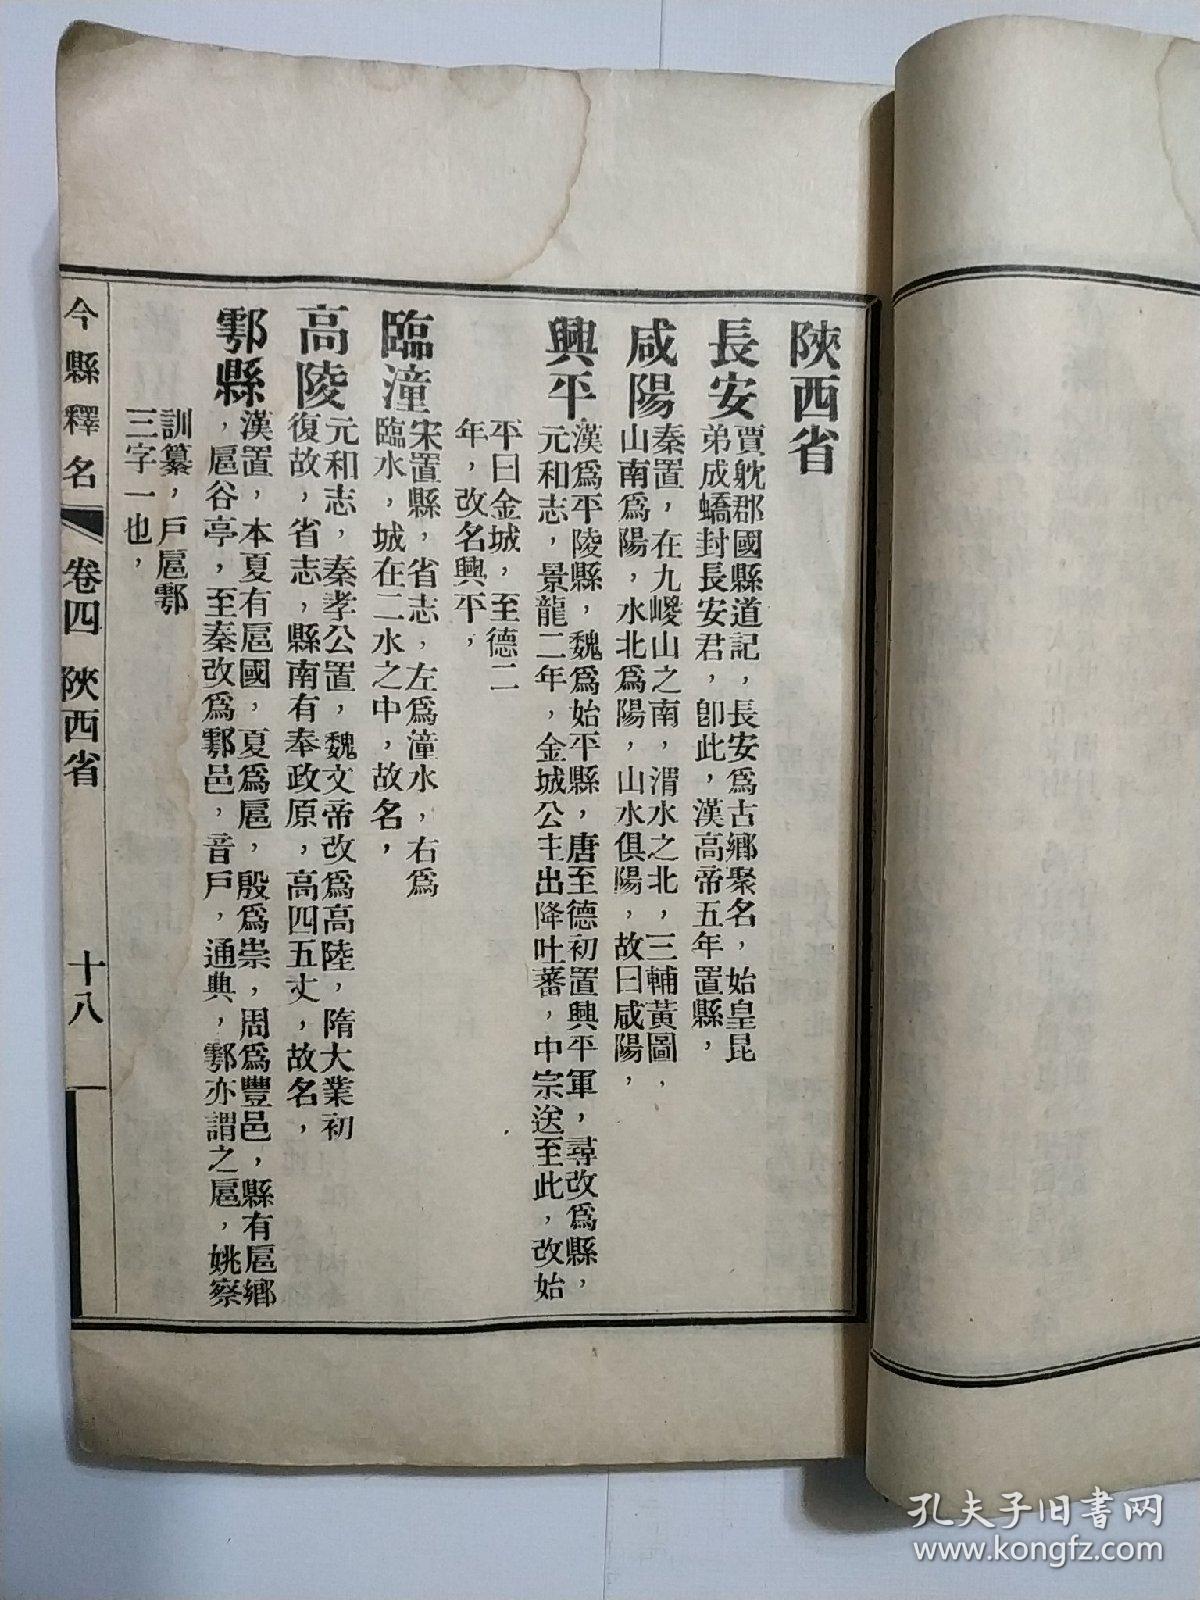 陝西省
長安
賈躭郡國縣道記，長安爲古鄉聚名，始皇昆
弟成蟜封長安君，卽此，漢高帝五年置縣，
咸陽
秦置，在九嵕山之南，渭水之北，三輔黃圖，
山南爲陽，水北爲陽，山水俱陽，故曰咸陽，
興平
漢爲平陵縣，魏爲始平縣，唐至德初置興平軍，尋改爲縣，
元和志，景龍二年，金城公主出降吐蕃，中宗送至此，改始
平曰金城，至德二
年，改名興平，
臨潼
宋置縣，省志，左爲潼水，右爲
臨水，城在二水之中，故名，
高陵
元和志，秦孝公置，魏文帝改爲高陸，隋大業初
復故，省志，縣南有奉政原，高四五丈，故名，
鄠縣
漢置，本夏有扈國，夏爲扈，殷爲崇，周爲豐邑，縣有扈鄉
，扈谷亭，至秦改爲鄠邑，音戶，通典，鄠亦謂之扈，姚察
訓纂，戶扈鄠
三字一也，
今縣釋名 卷四 陝西省 十八
孔夫子旧书网
www.kongfz.com